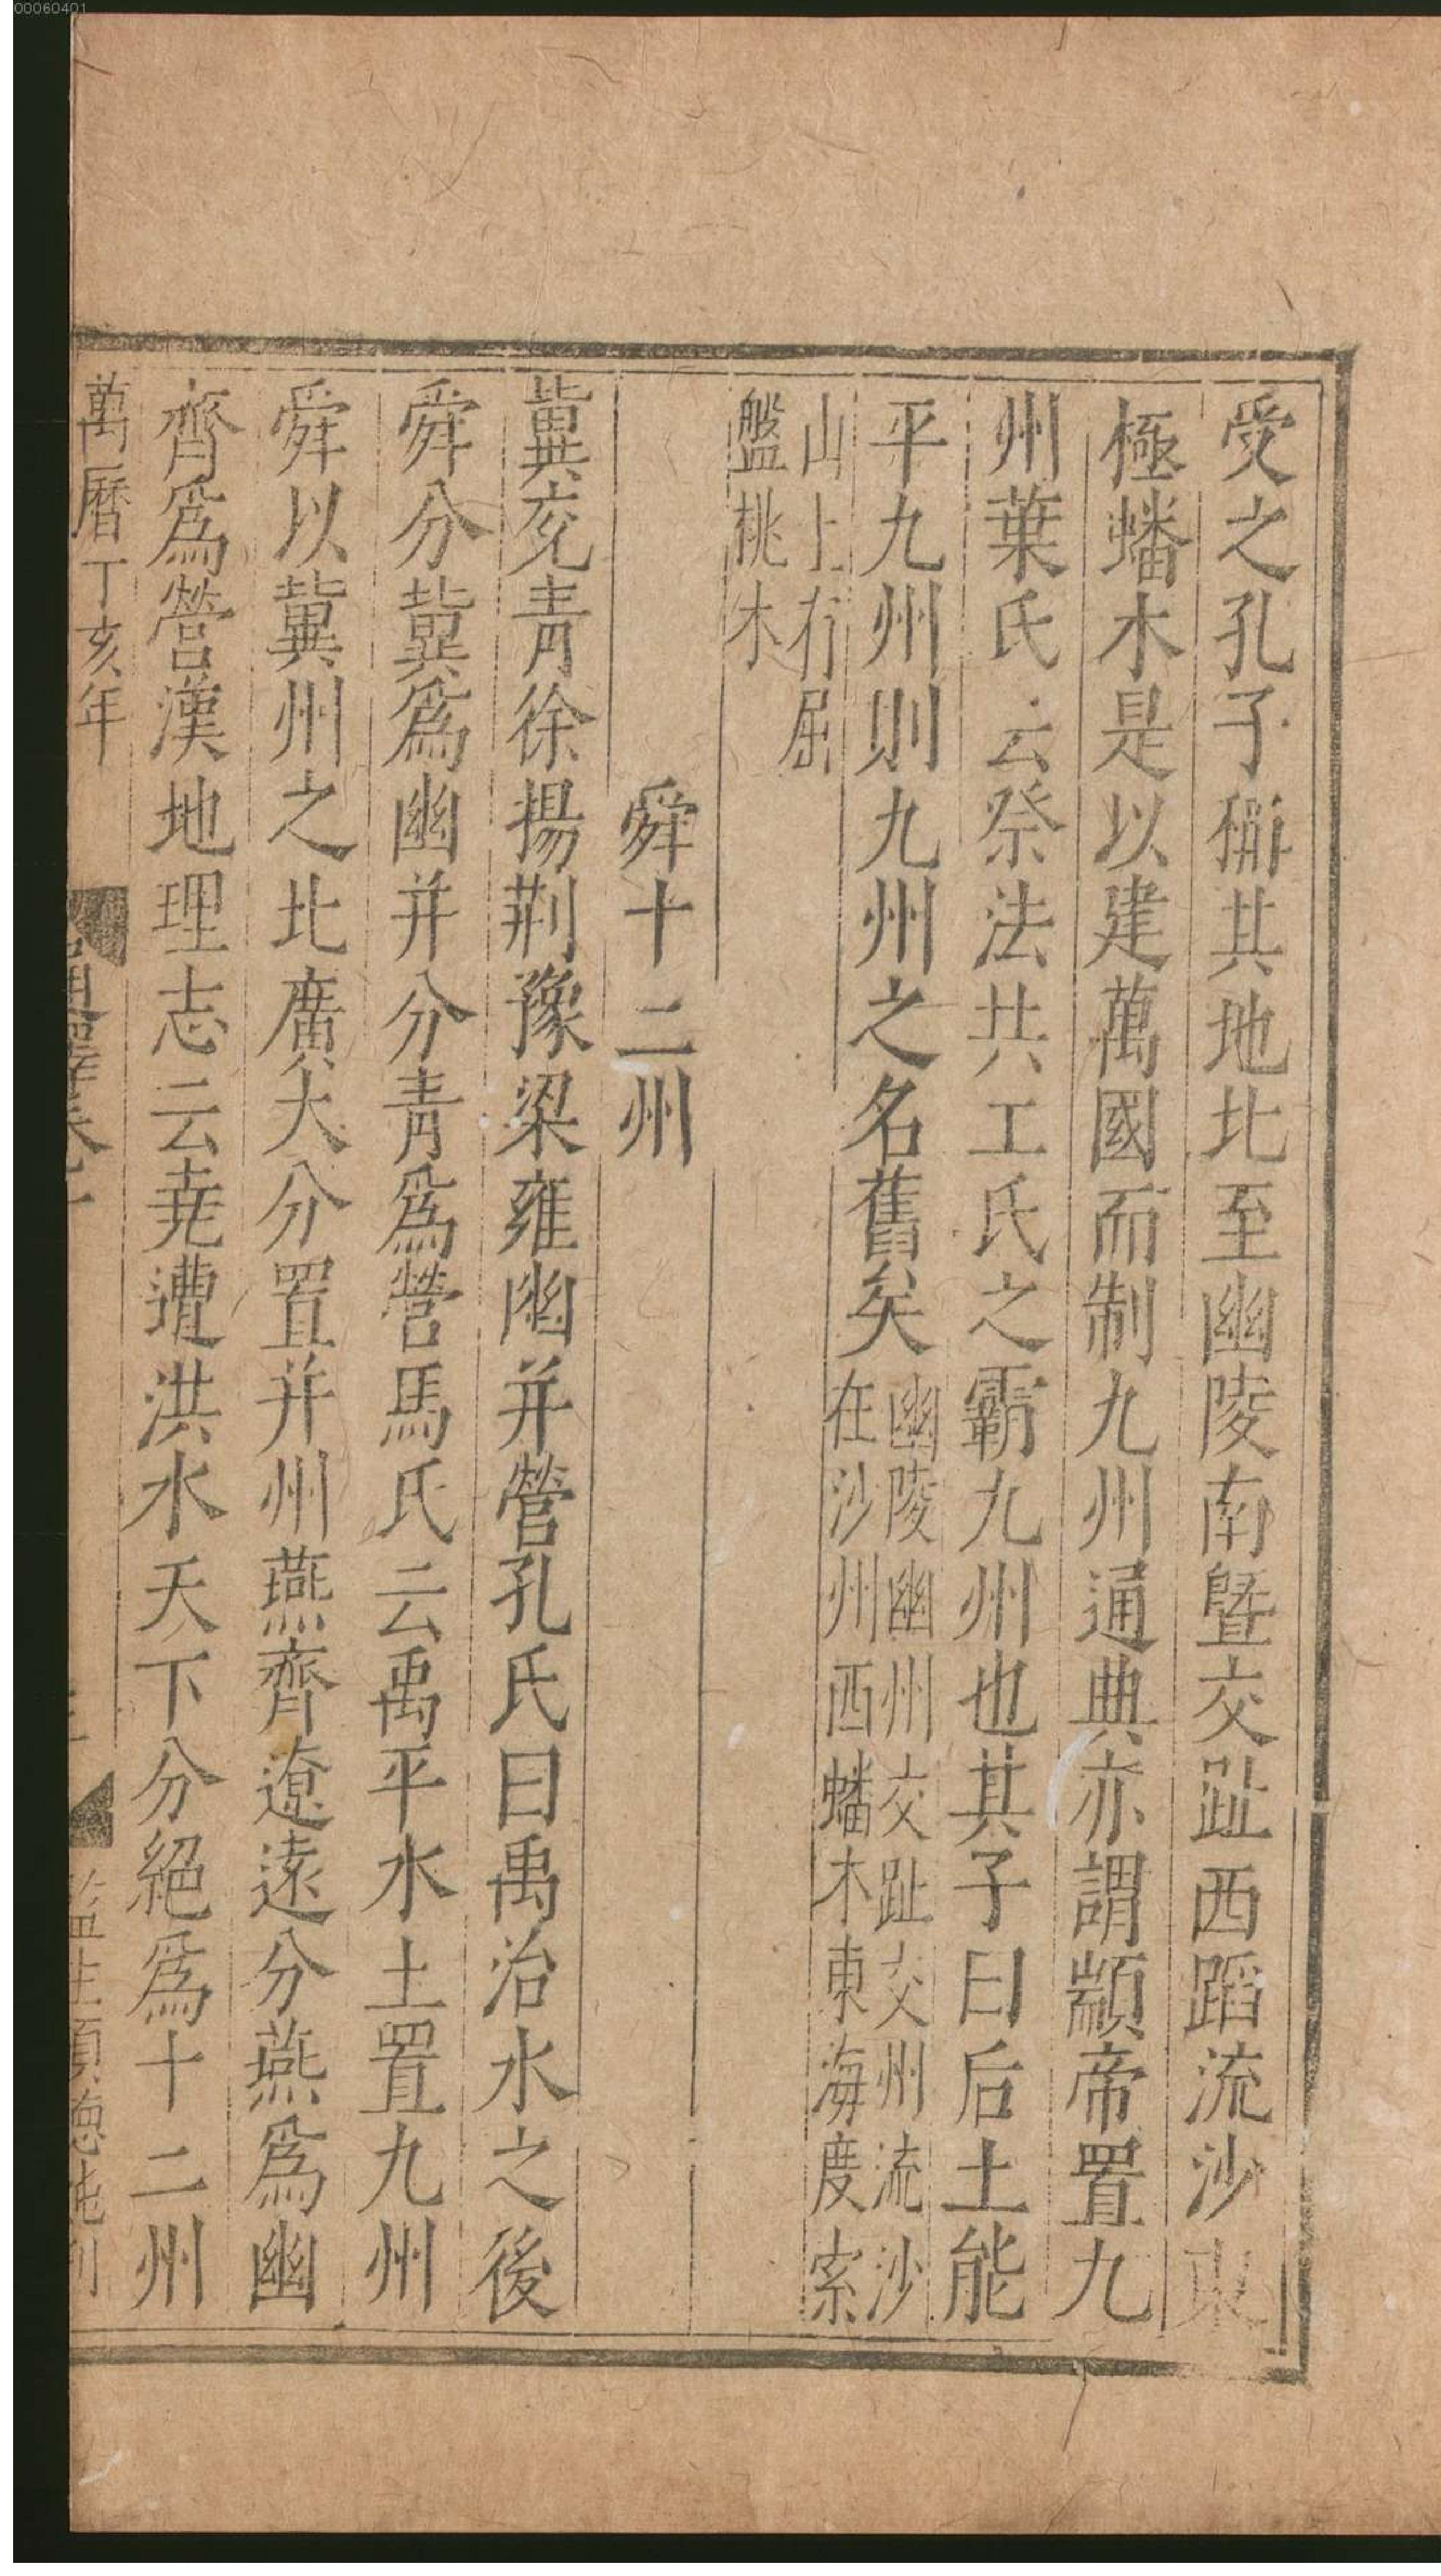 受之孔子稱其地北至幽陵南曁交趾西蹈流沙東
極蟠木是以建萬國而制九州通典亦謂顓帝置九
州葉氏云祭法共工氏之霸九州也其子曰后土能
平九州則九州之名舊矣幽陵幽州交趾交州流沙
在沙州西蟠木東海度索
山上有屈
盤桃木
舜十二州
冀兗青徐揚荆豫梁雍幽并營孔氏曰禹治水之後
舜分冀爲幽并分青爲營馬氏云禹平水土置九州
舜以冀州之北廣大分置并州燕齊遼遠分燕爲幽
齊爲營漢地理志云堯遭洪水天下分絕爲十二州
萬曆丁亥年
00060401